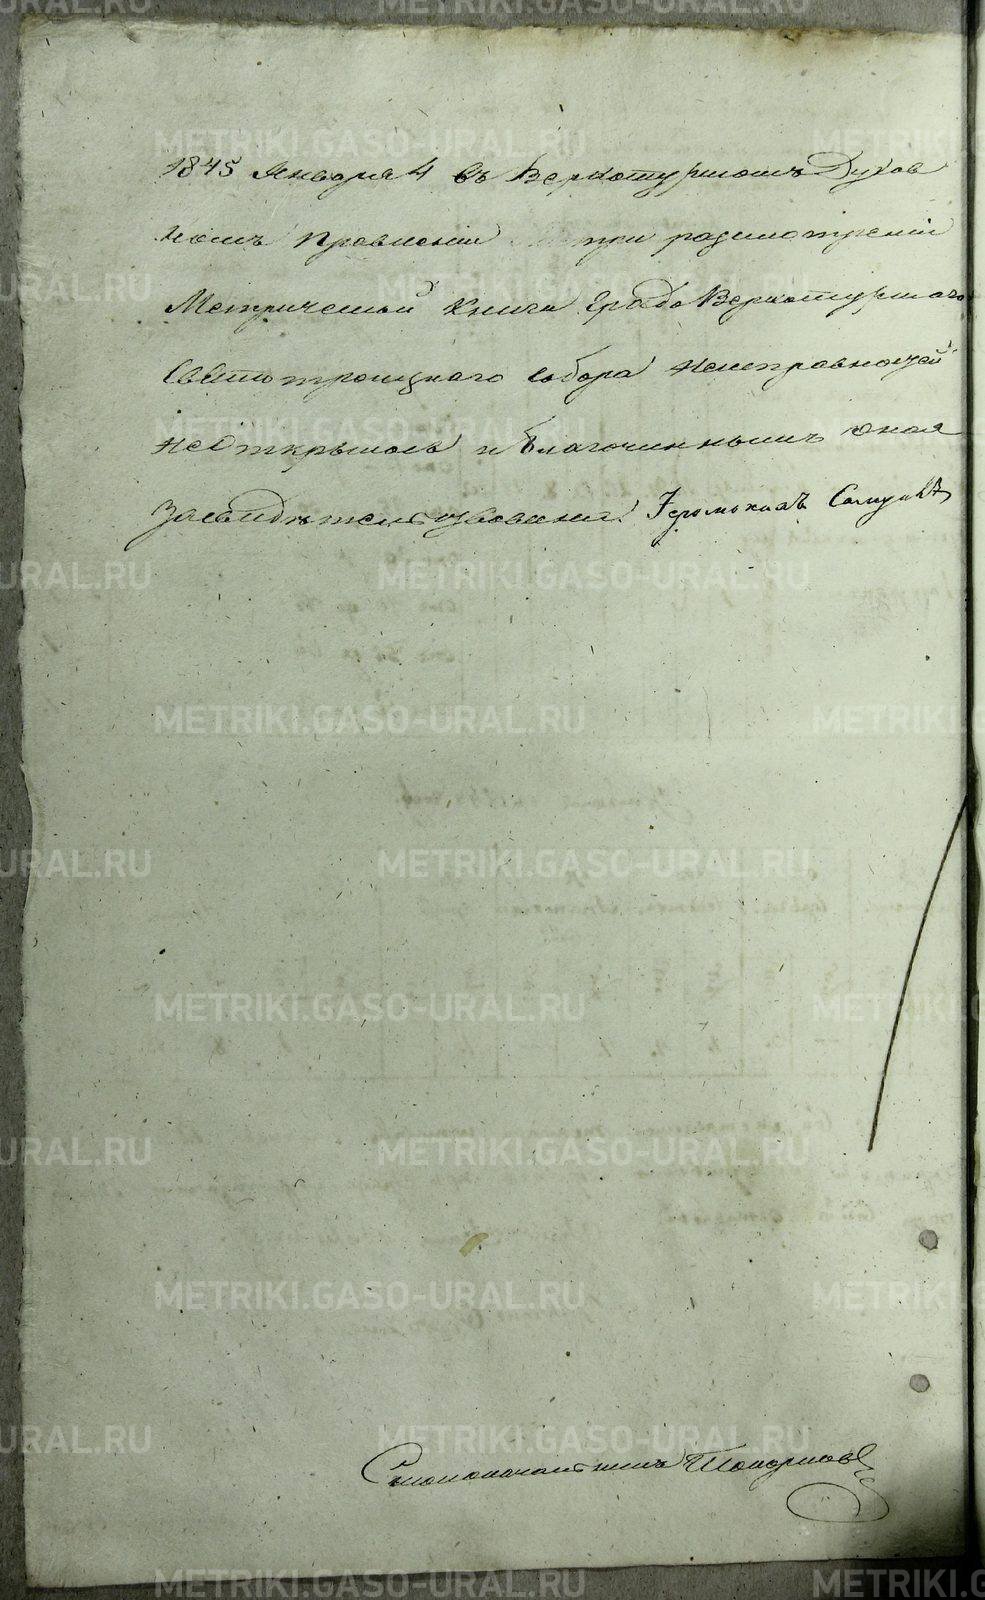 1845 Января 4 въ Верхотурскомъ Духов
номъ Правленіи при разсмотреніи
Метрической Книги Градо Верхотурскаго
Святотроицкаго собора неисправностей
не открылось и благочиннымъ оная
Засвидѣтельствована. Іеромонахъ
Столоначальникъ Топорковъ
METRIKI.GASO-URAL.RU